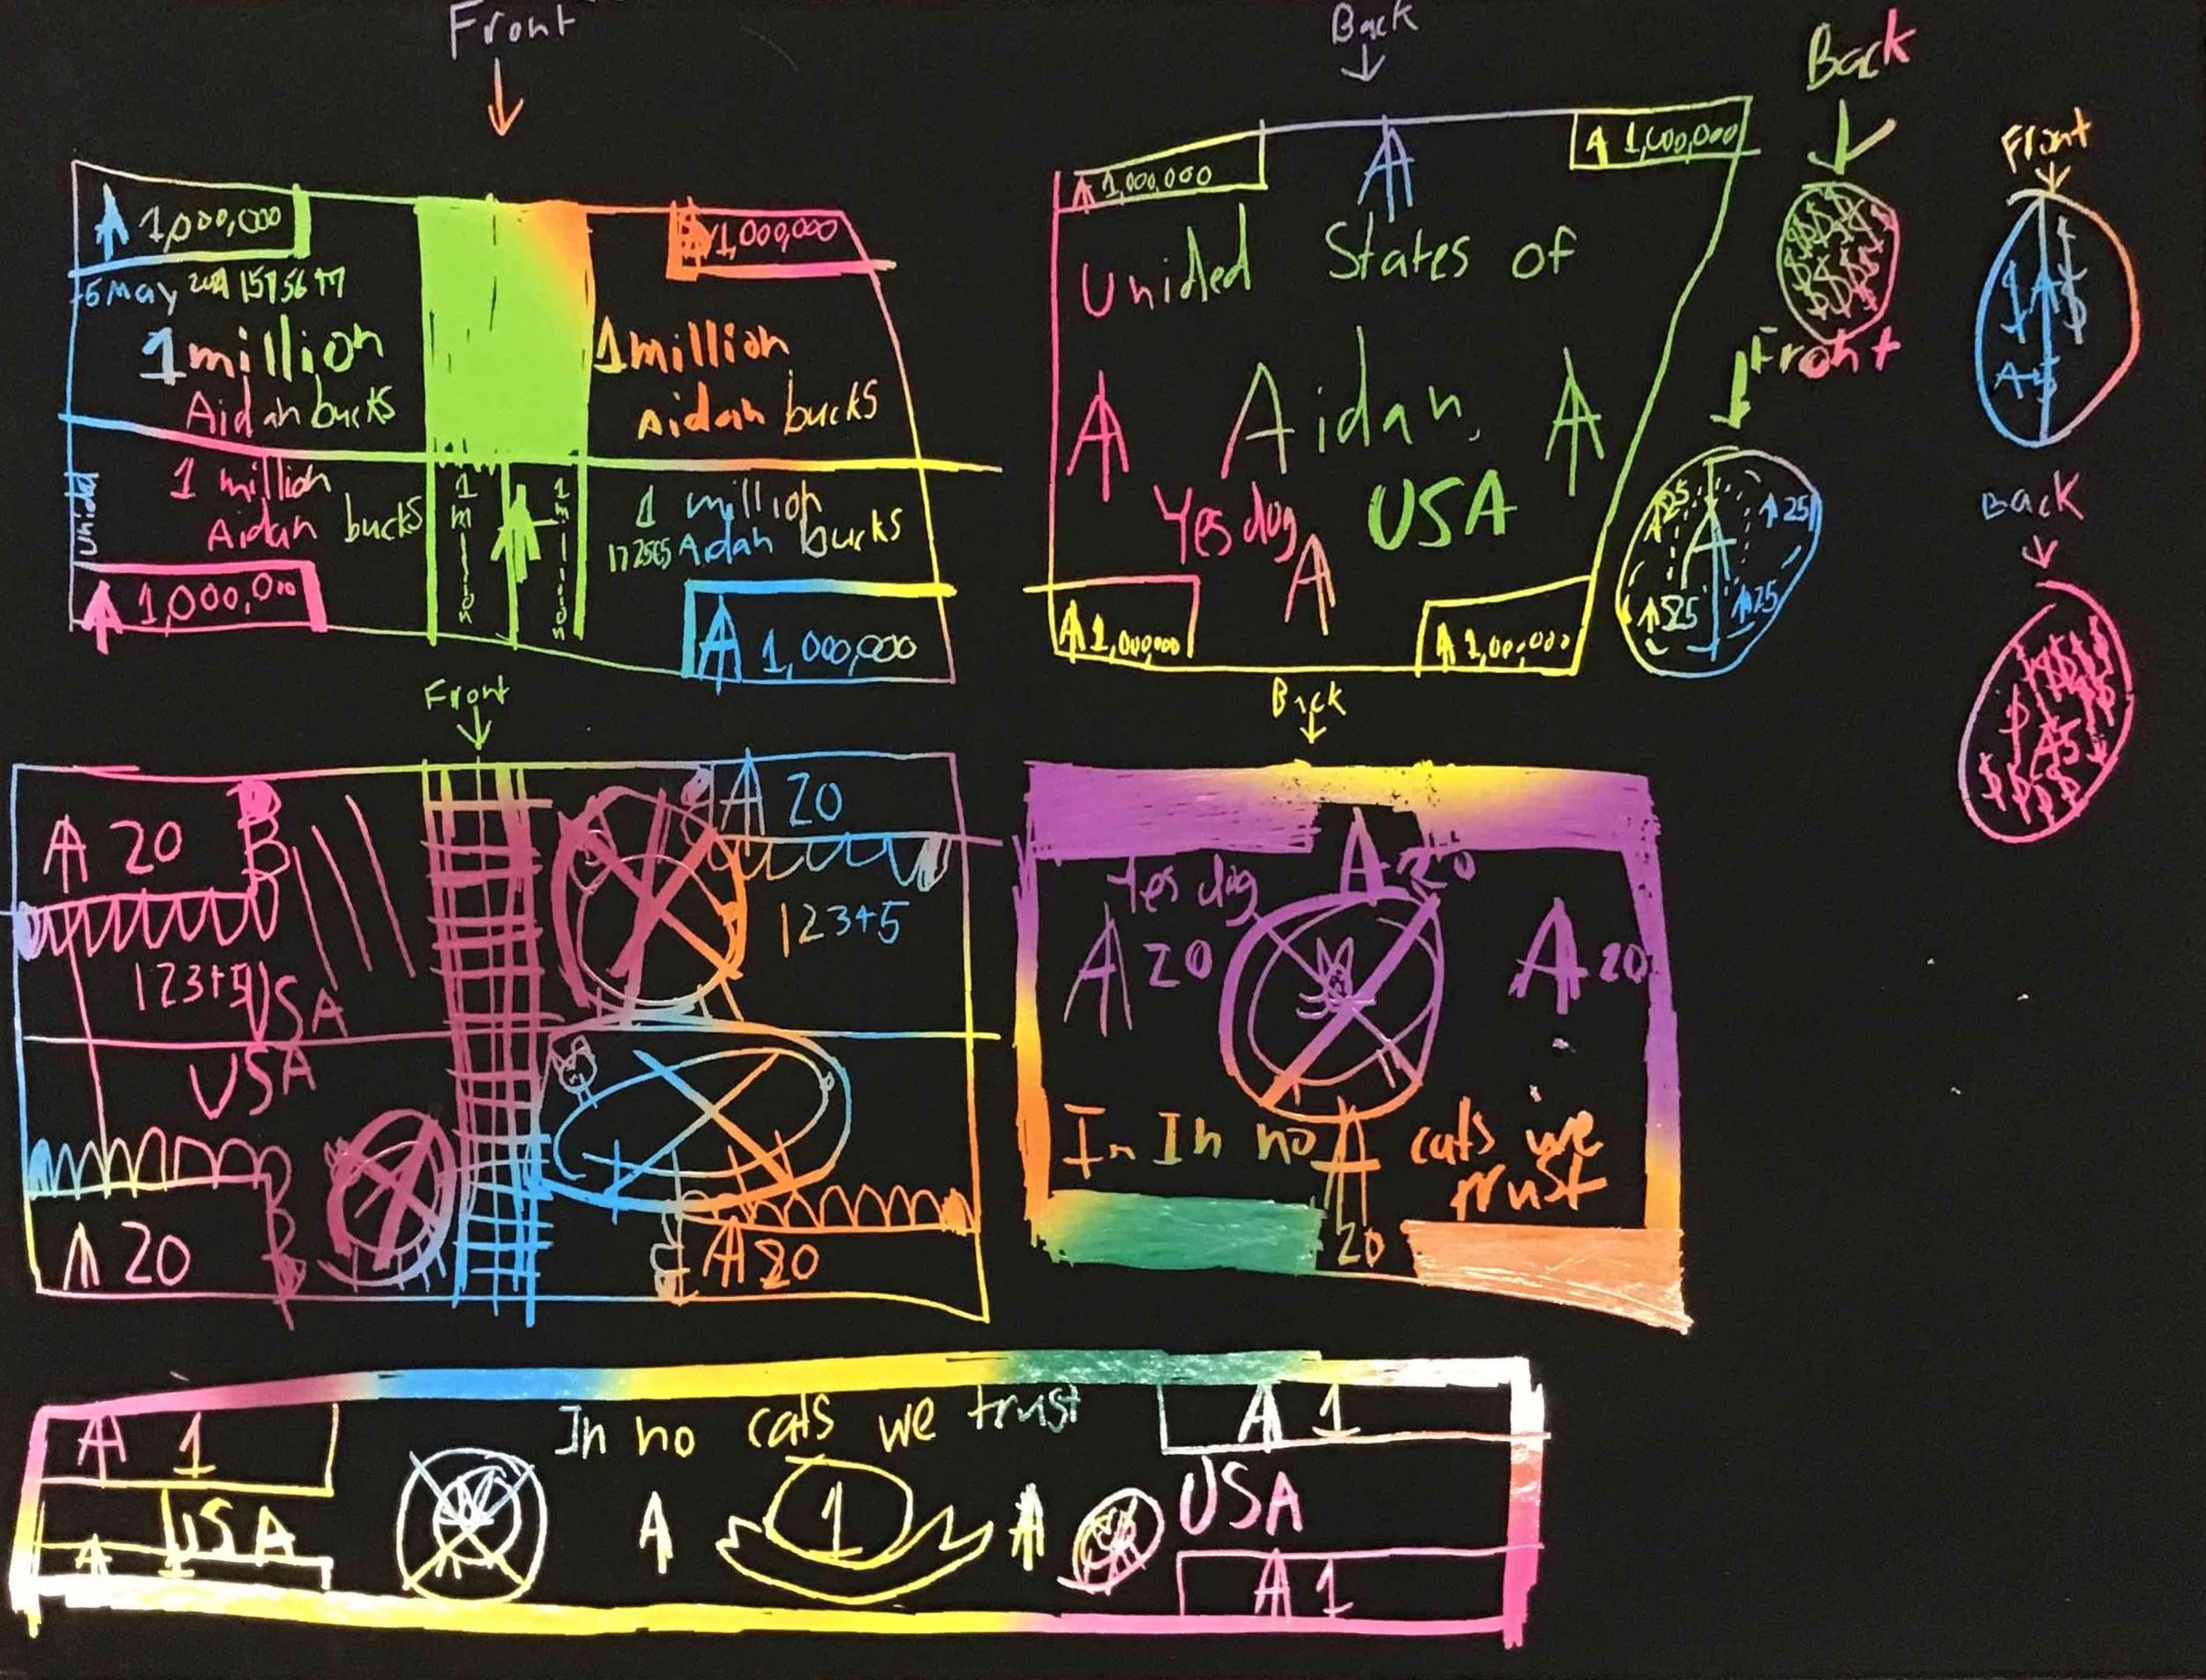 Front
Back
Back
Front
1,000,000
1,000,000
1 million
Aidan bucks
1 million
Aidan bucks
unided
1 million
Aidan bucks
1 million
1 million
1 million
Adah bucks
1,000,000
1,000,000
A 1,000,000
A 1,000,000
Unided States of
Aidan,
USA
Yes dog
A
1,000,000
1,000,000
Front
25
25
25
25
A5
Back
A5
Front
A 20
B
123+5
USA
USA
A 20
A 20
123+5
A 20
Back
Yes dog
A 20
A 20
A 20
In In no cats we
trust
A
20
In no cats we trust
A 1
USA
A
A
1
A
A 1
USA
A 1